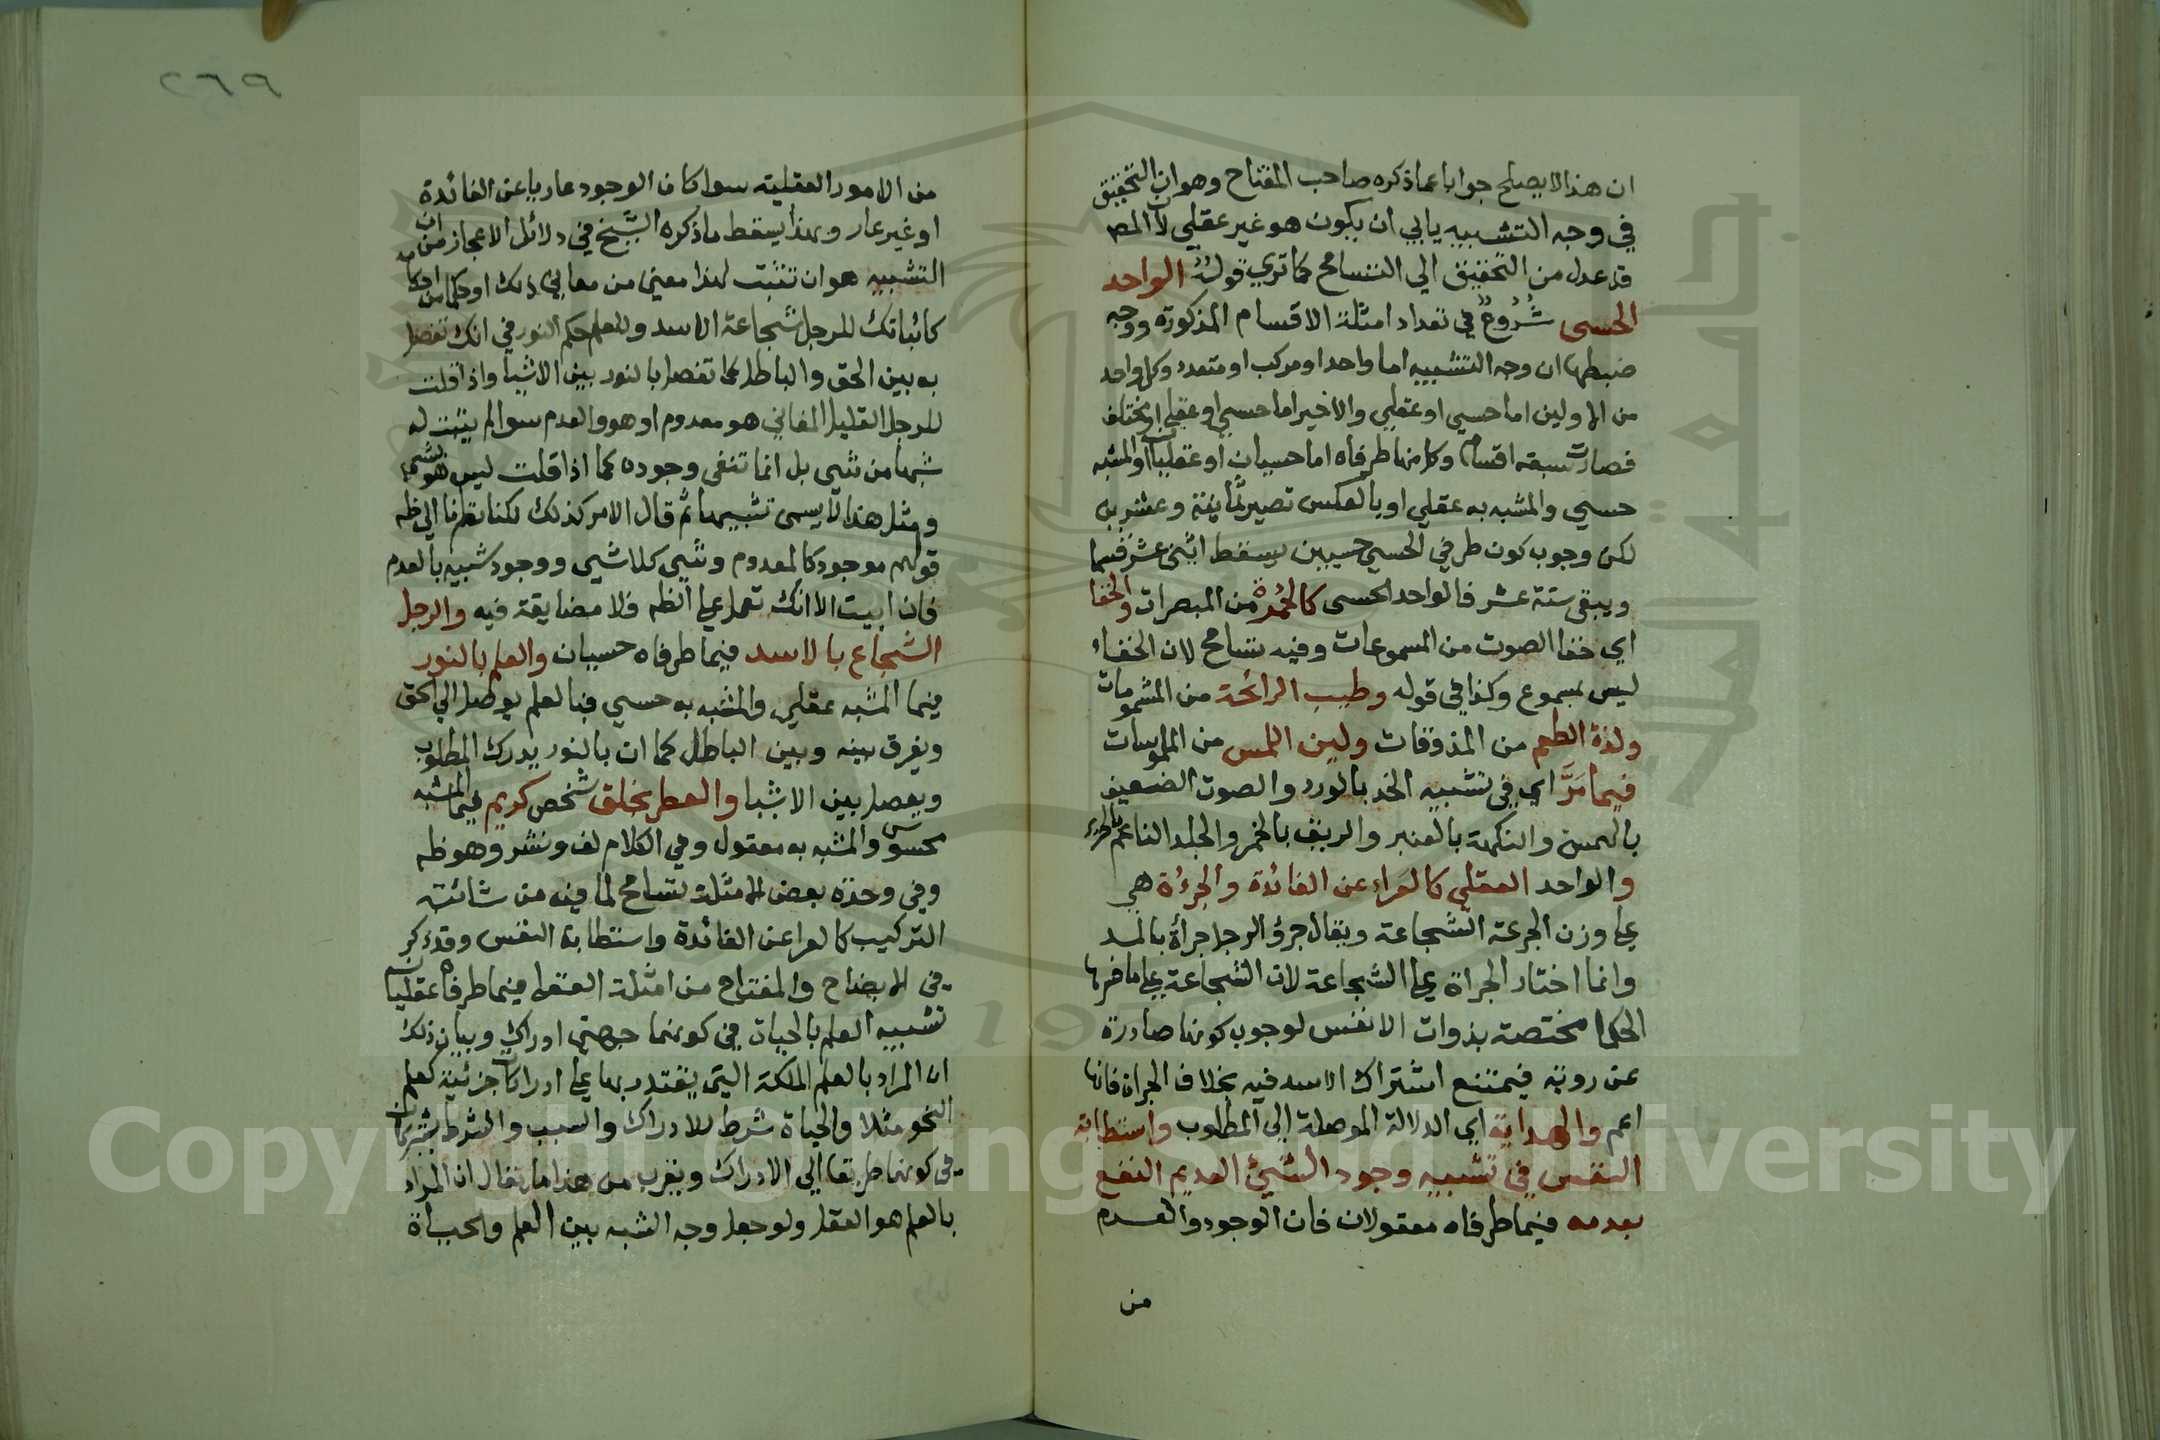 ان هذا لا يصلح جوابا عما ذكره صاحب المفتاح وهو ان التحقيق
في وجه التشبيه يابي ان يكون هو غير عقلي لان المص
قد عدل من التحقيق الي التسامح كما تري قوله الواحد
الحسي شروع في تعداد امثلة الاقسام المذكورة ووجه
ضبطها ان وجه التشبيه اما واحد او مركب او متعدد وكل واحد
من الاولين اما حسي او عقلي والاخير اما حسي او عقلي او مختلف
فصارت سبعة اقسام وكل منها طرفاه اما حسيان او عقليان او المشبه
حسي والمشبه به عقلي او بالعكس تصير ثمانية وعشرين
لكن وجوب كون طرفي الحسي حسيين يسقط اثني عشر قسما
ويبقي ستة عشر فالواحد الحسي كالحمرة من المبصرات والخفا
اي خفا الصوت من المسموعات وفيه تسامح لان الخفاء
ليس بمسموع وكذا في قوله وطيب الرائحة من المشمومات
ولذة الطعم من المذوقات ولين اللمس من الملموسات
فيما مر اي في تشبيه الخد بالورد والصوت الضعيف
بالهمس والنكهة بالعنبر والريق بالخمر والجلد الناعم بالحرير
والواحد العقلي كالعراء عن الفائدة والجرءة هي
علي وزن الجرعة الشجاعة ويقال جرؤ الرجل جرأة بالمد
وانما اختار الجراة علي الشجاعة لان الشجاعة علي ما فسرها
الحكما مختصة بذوات الانفس لوجوب كونها صادرة
عن روية فيمتنع اشتراك الاسد فيه بخلاف الجراة فانها
اعم والهداية اي الدلالة الموصلة الي المطلوب واستطابة
النفس في تشبيه وجود الشيئ العديم النفع
بعدمه فيما طرفاه معقولان فان الوجود والعدم
من
٢٦٩
من الامور العقلية سوا كان الوجود عاريا عن الفائدة
او غير عار وبهذا يسقط ما ذكره الشيخ في دلائل الاعجاز من ان
التشبيه هو ان تثبت لهذا معني من معاني ذلك او حكما من احكامه
كاثباتك للرجل شجاعة الاسد وللعلم حكم النور في انك تفصل
به بين الحق والباطل كما تفصل بالنور بين الاشيا واذا قلت
للرجل القليل المعاني هو معدوم او هو والعدم سوا لم تثبت له
شبها من شي بل انما تنفي وجوده كما اذا قلت ليس هو بشي
ومثل هذا لا يسمي تشبيها ثم قال الامر كذلك لكنا نظرنا الي ظه
قولهم موجود كالمعدوم وشي كلا شي ووجود شبيه بالعدم
فان ابيت الا انك تعمل علي الظه فلا مضايقة فيه والرجل
الشجاع بالاسد فيما طرفاه حسيان والعلم بالنور
فيما المشبه عقلي والمشبه به حسي فبالعلم يوصل الي الحق
ويفرق بينه وبين الباطل كما ان بالنور يدرك المطلوب
ويفصل بين الاشيا والعطر بخلق شخص كريم فيما المشبه
محسوس والمشبه به معقول وفي الكلام لف ونشر وهو ظه
وفي وحدة بعض الامثلة تسامح لما فيه من شائبة
التركيب كالعرا عن الفائدة واستطابة النفس وقد ذكر
في الايضاح والمفتاح من امثلة العقلي فيما طرفاه عقليان
تشبيه العلم بالحياة في كونهما جهتي ادراك وبيان ذلك
ان المراد بالعلم الملكة التي يقتدر بها علي ادراكات جزئية كعلم
النحو مثلا والحياة شرط للادراك والسبب والشرط يشتركان
في كونهما طريقا الي الادراك ويقرب من هذا ما يقال ان المراد
بالعلم هو العقل ولو جعل وجه الشبه بين العلم والحياة
Copyright © King Saud University
1957